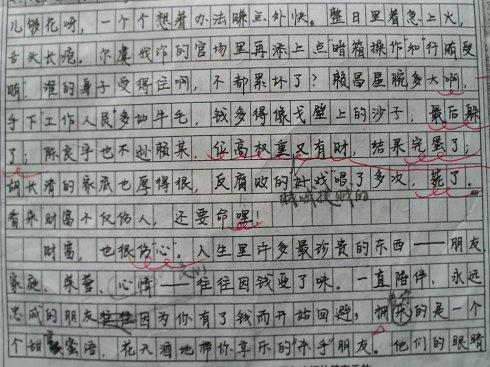 儿够花呀，一个个想着办法赚点外快。整日里着急上火，
舌头长疮。尔虞我诈的官场里再添上点“暗箱操作”和“行贿受
贿”谁的身子受得住啊，不都累坏了？殷昌星腕多大啊，
手下工作人员多如牛毛，钱多得像戈壁上的沙子，最后躲
了；陈良宇也不逊殷某，位高权重又有财，结果完蛋了；
胡长清的家底也厚得很，反腐败的“戏”唱了多次，毙了。
看来财富不仅伤人，还要命嘿！
财富，也很伤“心”。人生里许多最珍贵的东西——朋友、
家庭、荣誉、心情——往往因钱变了味。一直陪伴，永远
忠诚的朋友因为你有了钱而开始回避，拥来的是一个
个甜言蜜语，花天酒地带你享乐的“杀手”朋友。他们的眼睛